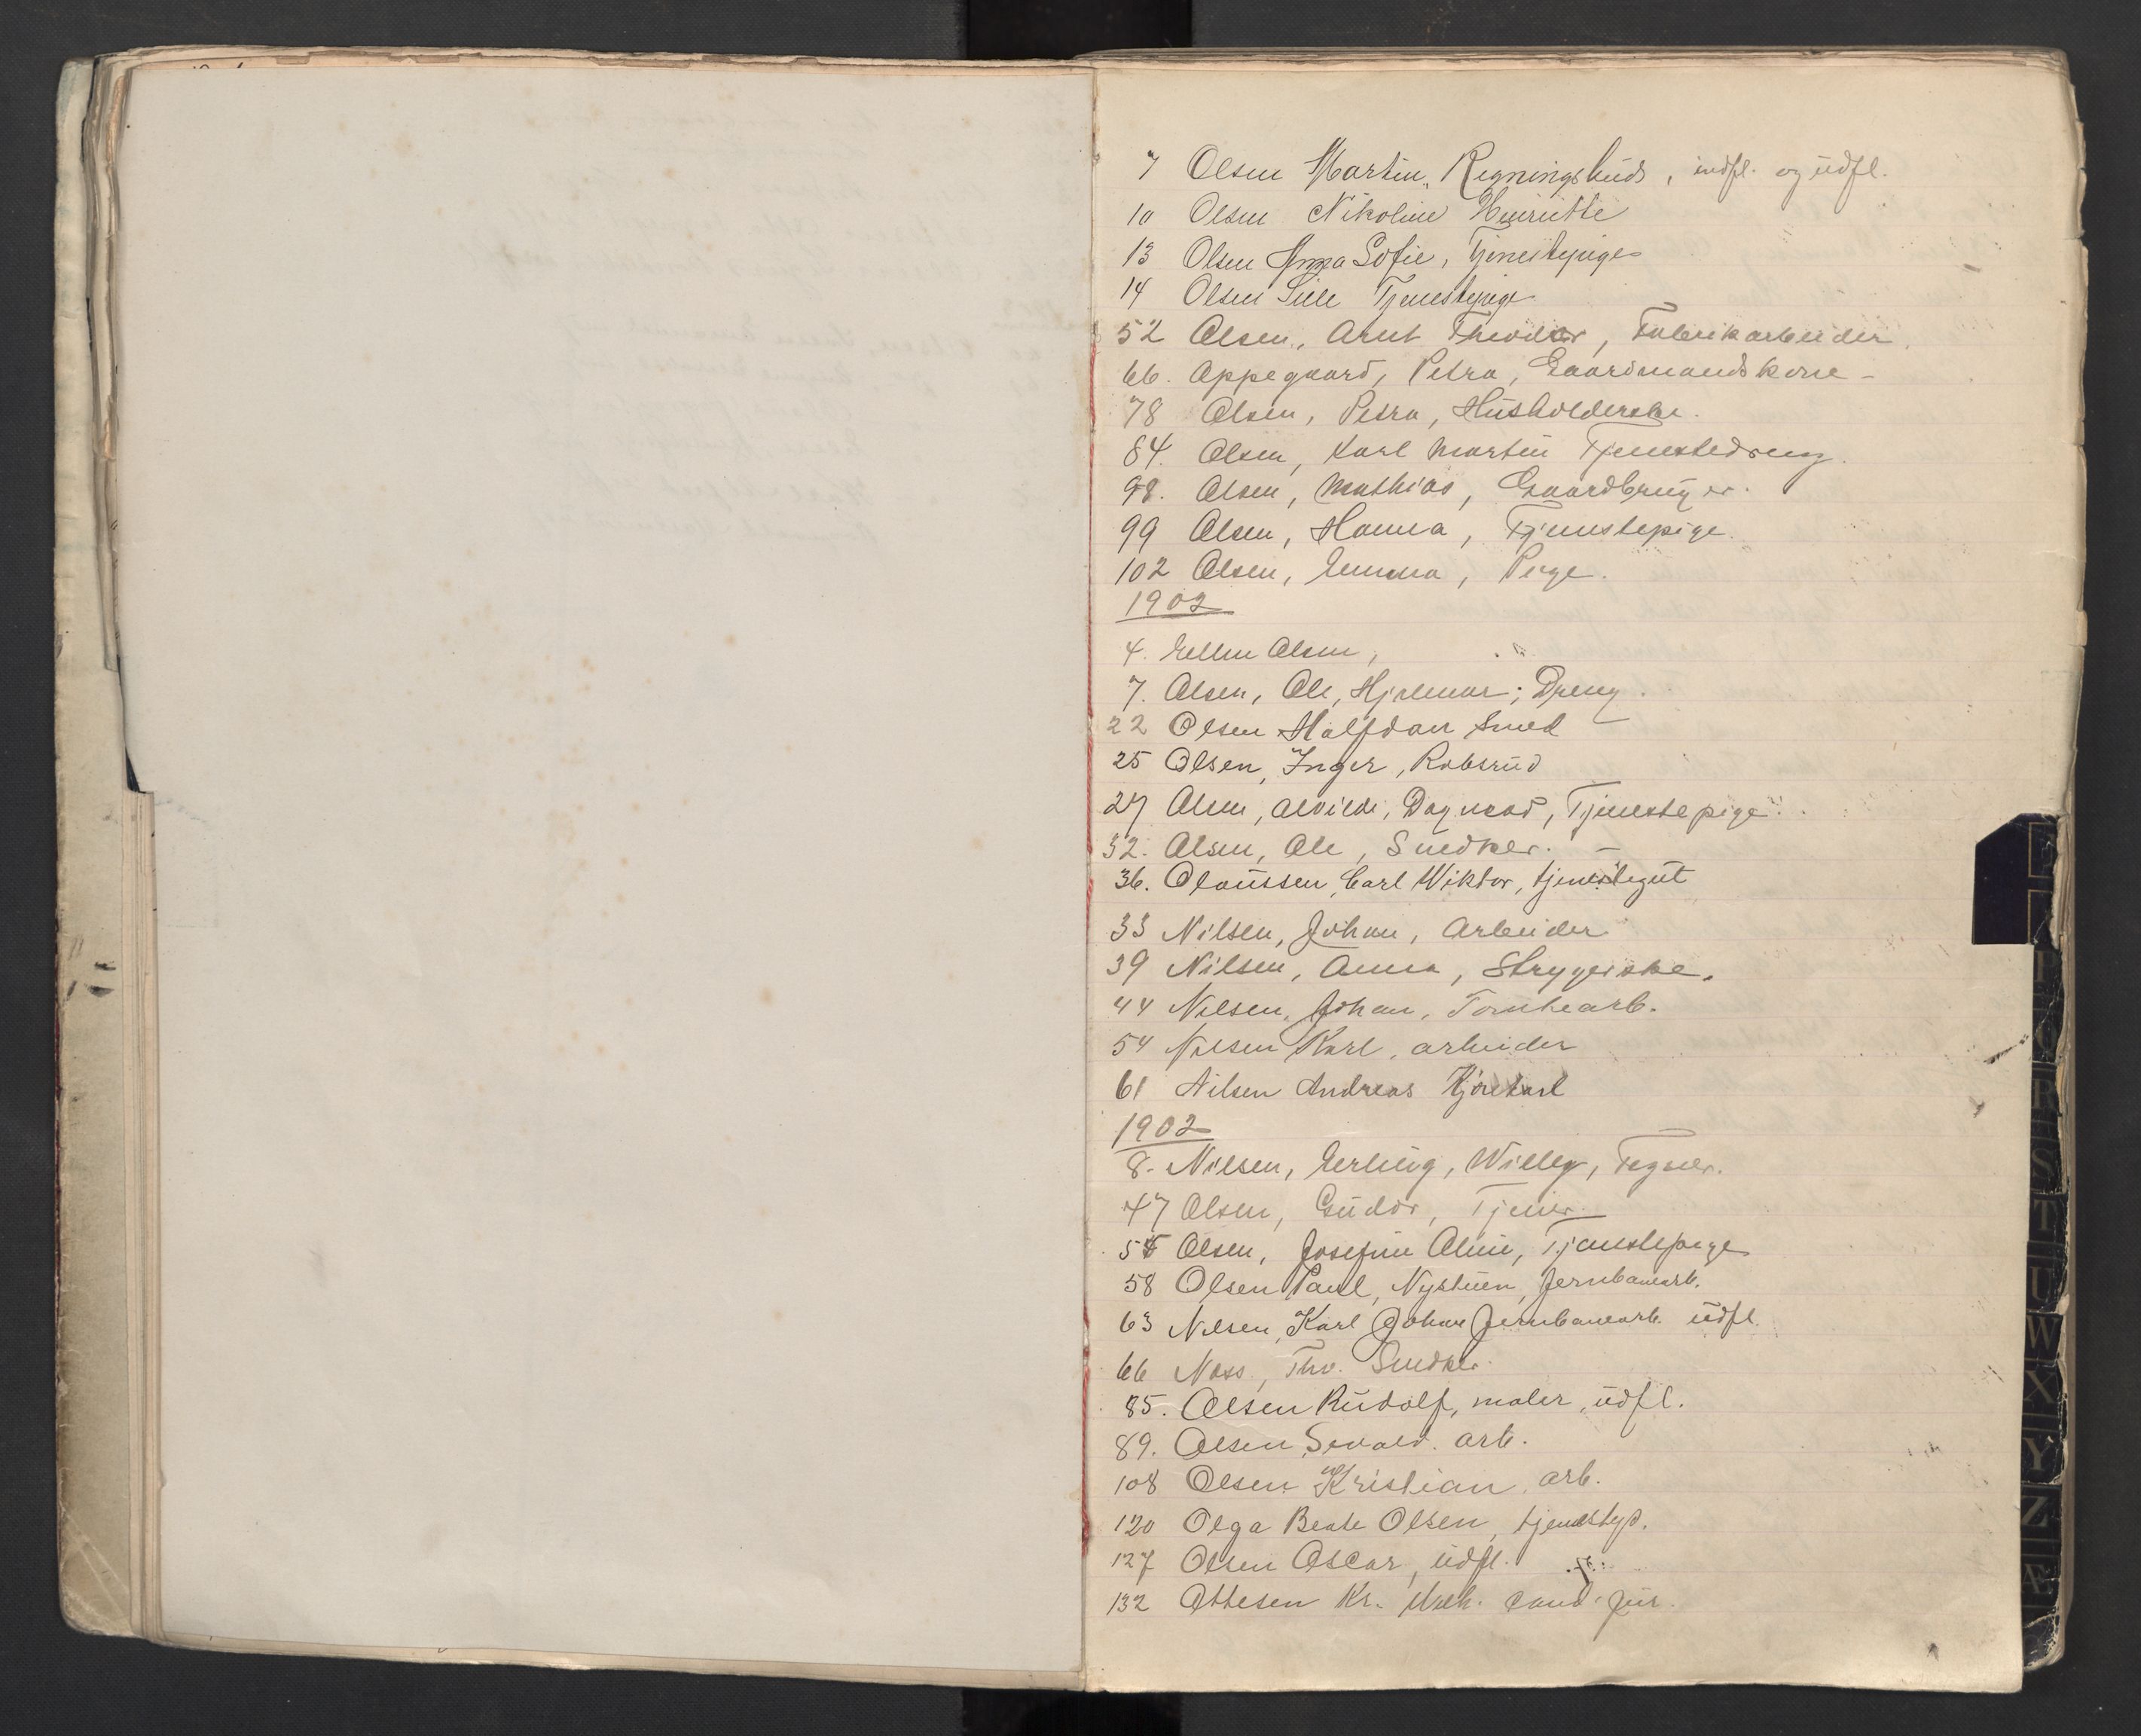 7 Olsen Martin, Regningsbud, indfl. og udfl.
10 Olsen Nikoline Henriette
13 Olsen Anna Sofie, Tjenestepige
14 Olsen Sille Tjenestepige
52 Olsen, Arnt Theodor, Fabrikarbeider.
66. Oppegaard, Petra, Gaardmandskone -
78 Olsen, Petra, Husholderske.
84. Olsen, Karl Martin Tjenestedreng.
98. Olsen, Mathias, Gaardbruger.
99 Olsen, Hanna, Tjenestepige.
102 Olsen, Emma, Pige.
1902
4. Ellen Olsen,
7. Olsen, Ole, Hjalmar; Dreng.
22 Olsen Halfdan Smed
25 Olsen, Inger, Robsrud
27 Olsen, Alvilde, Dagmar, Tjenestepige.
32. Olsen, Ole, Snedker. -
36. Olaussen, Carl Wiktor, tjenestegut
33 Nilsen, Johan, Arbeider
39 Nilsen, Anna, Strygerske.
44 Nilsen, Johan, Tomtearb.
54 Nilsen Karl, arbeider
61 Nilsen Andreas Kjørekarl
1902
8. Nilsen, Erling, Willy, Tegner.
47 Olsen, Gudor, Tjener.
55 Olsen, Josefine Aline, Tjenestepige
58 Olsen Paul, Nystuen, Jernbanearb.
63 Nilsen, Karl Johan Jernbanearb. udfl.
66 Næss, Thv. Snedker.
85. Olsen Rudolf, maler, udfl.
89. Olsen, Sevald. arb.
108 Olsen Kristian, arb.
120 Olga Beate Olsen, tjenestep.
127 Olsen Oscar, udfl.
132 Ottesen Kr. cand. jur.
R
S
T
U
W
X
Y
Z
Æ